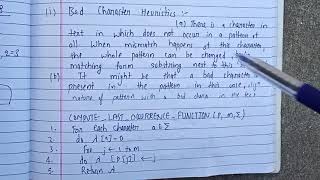 (1) Bad Character Heuristics :-
(a) There is a character in
text in which does not occur in a pattern at
all. When mismatch happens at this character,
the whole pattern can be changed,
matching form substring next to this
(b) It might be that a bad character is
present in the pattern in this case,
nature of pattern with a bad char in the text
COMPUTE_LAST_OCCURRENCE_FUNCTION (P, m, Σ)
1. For each character a ∈ Σ
2. do λ [a] = 0
3. For j ← 1 to m
4. do λ [P[j]] ← j
5. Return λ